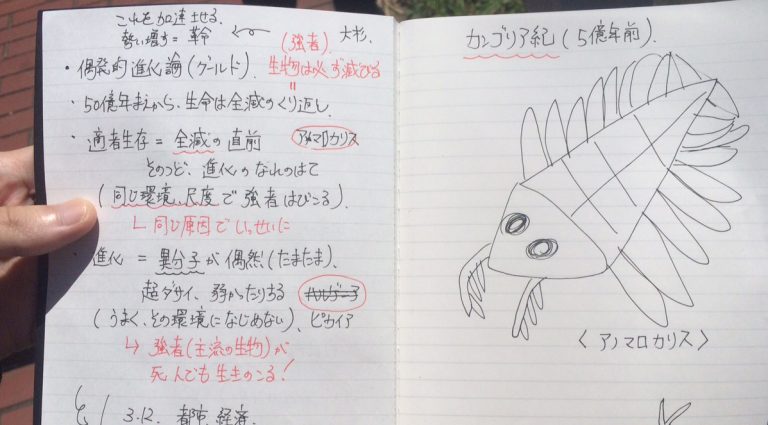 これを加速させる。
勢い増す = 革命 ← 大杉。
・偶発的進化論(グールド)。(強者) 生物は必ず滅びる
・50億年まえから、生命は全滅のくり返し。
・適者生存 = 全滅の直前 アノマロカリス
そのつど、進化のなれのはて
(同じ環境、尺度で強者はびこる)。
└ 同じ原因でいっせいに
・進化 = 異分子が偶然(たまたま)、
超ダサイ、弱かったりする
(うまく、その環境になじめない)、ピカイア
↳ 強者(主流の生物)が
死んでも生きのこる!
3.12. 都市、経済、
カンブリア紀(5億年前)。
〈アノマロカリス〉